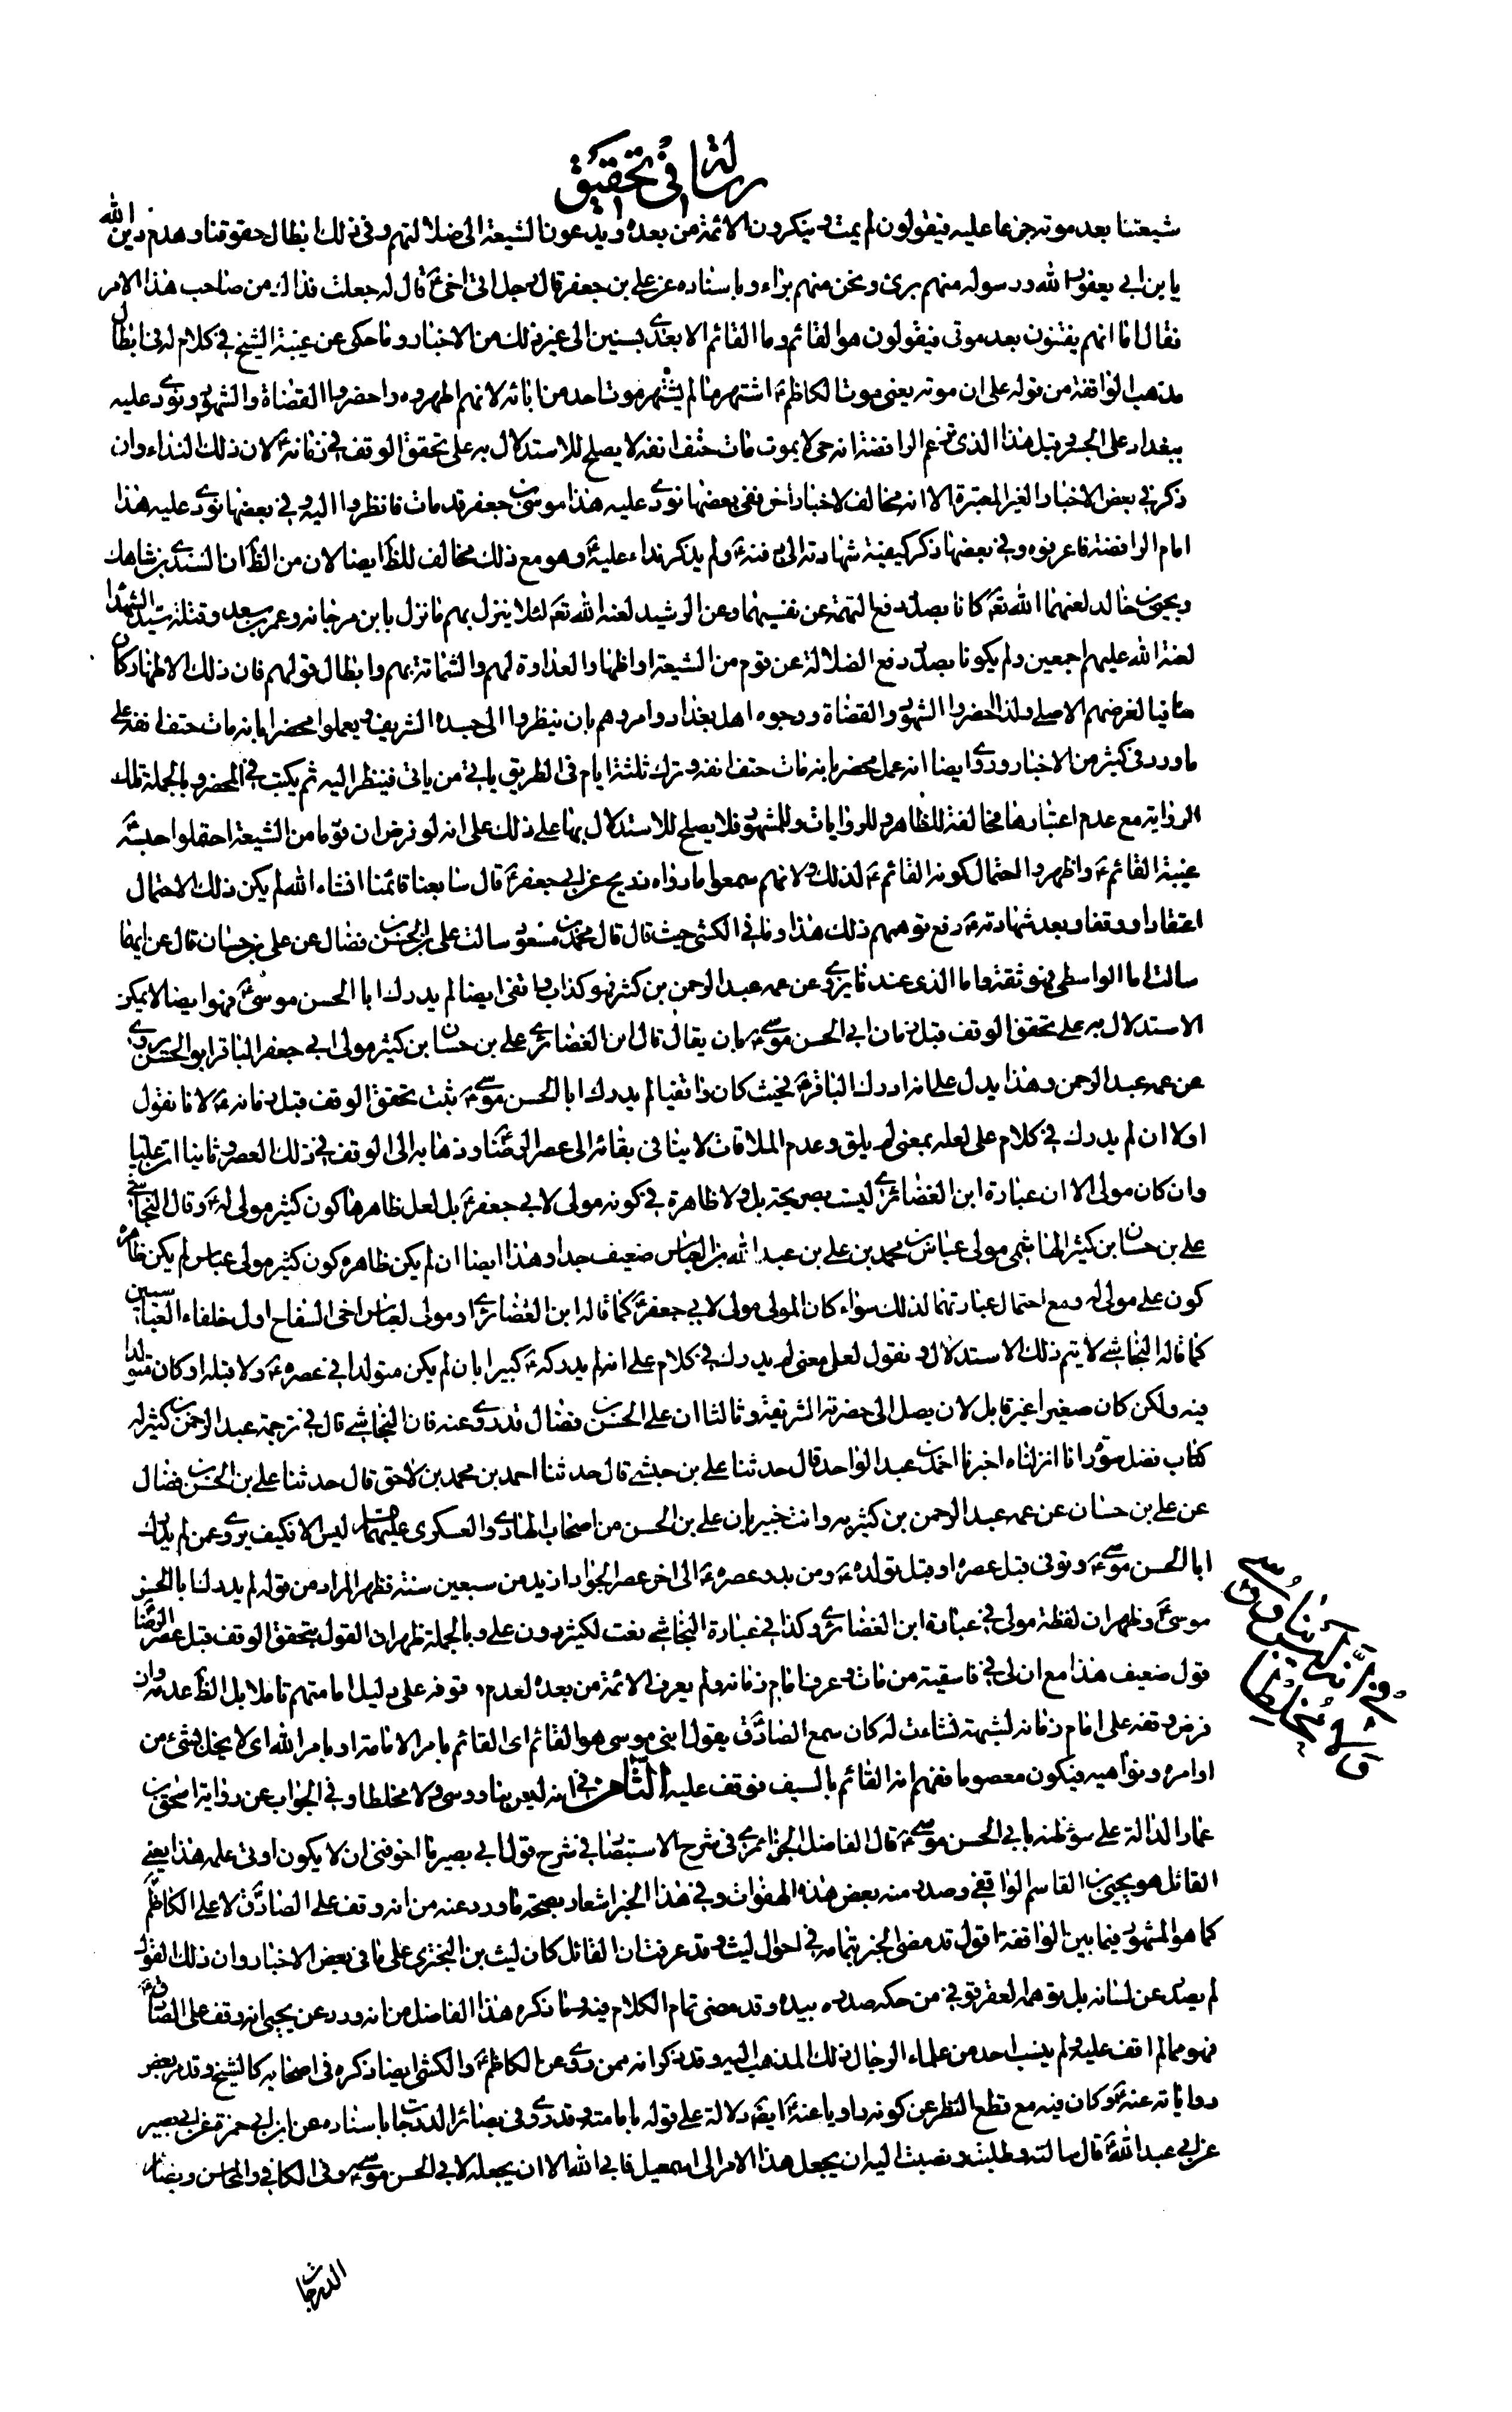 رسالة في تحقيق
شيعتنا بعد موته جزعا عليه فيقولون لم يمت وينكرون الائمة من بعده ويدعون الشيعة الى ضلالتهم وفي ذلك ابطال حقوقنا وهدم دين الله
يا بن ابي يعفور الله ورسوله منهم بريء ونحن منهم براء وباسناده عن علي بن جعفر قال رجل اتى اخي ع قال له جعلت فداك من صاحب هذا الامر
فقال اما انهم يفتنون بعد موتي فيقولون هو القائم وما القائم الا بعدي بسنين الى غير ذلك من الاخبار وما حكي عن غيبة الشيخ في كلام له في ابطال
مذهب الواقفة من قوله على ان موته يعني موت الكاظم ع اشتهر ما لم يشتهر موت احد من ابائه لانهم اظهروه واحضروا القضاة والشهود ونودي عليه
ببغداد على الجسر وقيل هذا الذي تزعم الرافضة انه حي لا يموت مات حتف انفه لا يصلح للاستدلال به على تحقق الوقف في زمانه ع لان ذلك النداء وان
ذكر في بعض الاخبار الغير المعتبرة الا انه مخالف لاخبار اخر ففي بعضها نودي عليه هذا موسى بن جعفر قد مات فانظروا اليه وفي بعضها نودي عليه هذا
امام الرافضة فاعرفوه وفي بعضها ذكر كيفية شهادته الى دفنه ع ولم يذكر نداء عليه وهو مع ذلك مخالف للظ ايضا لان من الظ ان السندي بن شاهك
ويحيى بن خالد لعنهما الله تع كانا بصدد دفع التهمة عن نفسيهما وعن الرشيد لعنه الله تع لئلا ينزل بهم ما نزل بابن مرجانه وعمر بن سعد وقتلة سيد الشهداء
لعنة الله عليهم اجمعين ولم يكونا بصدد دفع الضلالة عن قوم من الشيعة او اظهار العداوة لهم والشماتة بهم وابطال قولهم فان ذلك الاظهار كان
منافيا لغرضهم الاصلي ولذا احضروا الشهود والقضاة ووجوه اهل بغداد وامروهم بان ينظروا الى جسده الشريف ويعملوا محضرا بانه مات حتف انفه على
ما ورد في كثير من الاخبار وروي ايضا انه عمل محضر بانه مات حتف انفه وترك ثلثة ايام في الطريق ياتي من ياتي فينظر اليه ثم يكتب في المحضر وبالجملة تلك
الرواية مع عدم اعتبارها مخالفة للظاهر وللروايات وللمشهور فلا يصلح للاستدلال بها على ذلك على انه لو فرض ان قوما من الشيعة احتملوا حبسه
غيبة القائم ع واظهروا احتمال كونه القائم ع لذلك ولانهم سمعوا ما رواه ذريح عن ابي جعفر ع قال سابعنا قائمنا ان شاء الله لم يكن ذلك الاحتمال
اعتقادا ووقفا وبعد شهادته ع رفع توهمهم ذلك هذا وما في الكشي حيث قال قال محمد بن مسعود سالت علي بن الحسن بن فضال عن علي بن حسان قال عن ايهما
سالت اما الواسطي فهو ثقة واما الذي عندنا يروي عن عمه عبد الرحمن بن كثير فهو كذاب واقفي ايضا لم يدرك ابا الحسن موسى ع فهو ايضا لا يمكن
الاستدلال به على تحقق الوقف قبل زمان ابي الحسن موسى ع بان يقال قال ابن الغضائري علي بن حسان بن كثير مولى ابي جعفر الباقر ابو الحسن يروي
عن عمه عبد الرحمن وهذا يدل على انه ادرك الباقر ع فحيث كان واقفيا لم يدرك ابا الحسن موسى ع يثبت تحقق الوقف قبل زمانه ع لانا نقول
اولا ان لم يدرك في كلام علي لعله بمعنى لم يلق وعدم الملاقات لا ينافي بقائه الى عصر الرضا وذهابه الى الوقف في ذلك العصر وثانيا ان عليا
وان كان مولى الا ان عبارة ابن الغضائري ليست بصريحة بل ولا ظاهرة في كونه مولى لابي جعفر ع بل لعل ظاهرها كون كثير مولى له ع وقال النجاشي
علي بن حسان بن كثير الهاشمي مولى عباس بن محمد بن علي بن عبد الله بن العباس ضعيف جدا وهذا ايضا ان لم يكن ظاهره كون كثير مولى عباس لم يكن ظاهره
كون علي مولى له ومع احتمال عبارتهما لذلك سواء كان المولى مولى لابي جعفر ع كما قاله ابن الغضائري او مولى لعباس اخي السفاح اول خلفاء العباسيين
كما قاله النجاشي لا يتم ذلك الاستدلال ونقول لعل معنى لم يدرك في كلام علي انه لم يدركه ع كبيرا بان لم يكن متولدا في عصره ع ولا قبله او كان متولدا
فيه ولكن كان صغيرا غير قابل لان يصل الى حضرته الشريفة وثالثا ان علي بن الحسن بن فضال قد روى عنه فان النجاشي قال في ترجمة عبد الرحمن بن كثير له
كتاب فضل سورة انا انزلناه اخبرنا احمد بن عبد الواحد قال حدثنا علي بن حبشي قال حدثنا احمد بن محمد بن لاحق قال حدثنا علي بن الحسن بن فضال
عن علي بن حسان عن عمه عبد الرحمن بن كثير به وانت خبير بان علي بن الحسن من اصحاب الهادي والعسكري عليهما السلام ليس الا فكيف يروي عمن لم يدرك
ابا الحسن موسى ع وتوفي قبل عصره او قبل تولده ع ومن بدو عصره ع الى اخر عصر الجواد ازيد من سبعين سنة فظهر المراد من قوله لم يدرك ابا الحسن
موسى ع وظهر ان لفظة مولى في عبارة ابن الغضائري وكذا في عبارة النجاشي نعت لكثير دون علي وبالجملة ظهر ان القول بتحقق الوقف قبل عصر الرضا ع
قول ضعيف هذا مع ان لي في فاسقية من مات وعرف امام زمانه ولم يعرف الائمة من بعده لعدم وقوفه على دليل امامتهم تاملا بل الظ عدمه وان
فرض وقفه على امام زمانه لشبهة نشات له كان سمع الصادق ع يقول ابني موسى هو القائم اي القائم بامر الامامة او بامر الله اي لا يخل بشيء من
اوامره ونواهيه فيكون معصوما ففهم انه القائم بالسيف فوقف عليه الثامن في انه ليس بناووسي ولا مخلطا وفي الجواب عن رواية اسحق بن
عمار الدالة على سوء ظنه بابي الحسن موسى ع قال الفاضل الجزائري في شرح الاستبصار في شرح قول ابي بصير ما اخوفني ان لا يكون اوتي علمه هذا يعني
القائل هو يحيى بن القاسم الواقفي وصدر منه بعض هذه الهفوات وفي هذا الخبر اشعار بصحة ما ورد عنه من انه وقف على الصادق ع لا على الكاظم ع
كما هو المشهور فيما بين الواقفة اقول قد مضى الخبر بتمامه في احوال ليث وقد عرفت ان القائل كان ليث بن البختري على ما في بعض الاخبار وان ذلك القول
لم يصدر عن لسانه بل توهمه العقرقوفي من حكه صدره بيده وقد مضى تمام الكلام فيه وما ذكره هذا الفاضل من انه ورد عن يحيى انه وقف على الصادق ع
فهو مما لم اقف عليه ولم ينسب احد من علماء الرجال ذلك المذهب اليه وقد ذكروا انه ممن روى عن الكاظم ع والكشي ايضا ذكره في اصحابه كالشيخ وقد مر بعض
رواياته عنه ع وكان فيه مع قطع النظر عن كونه راويا عنه ع ايض دلالة على قوله بامامته وقد روى في بصائر الدرجات باسناده عن ابن ابي حمزة عن ابي بصير
عن ابي عبد الله ع قال سالته وطلبت ونصبت اليه ان يجعل هذا الامر الى اسمعيل فابى الله الا ان يجعله لابي الحسن موسى ع وفي الكافي والمحاسن وبصائر
الدرجات
في انه ليس بناووسي
ولا مخلطا